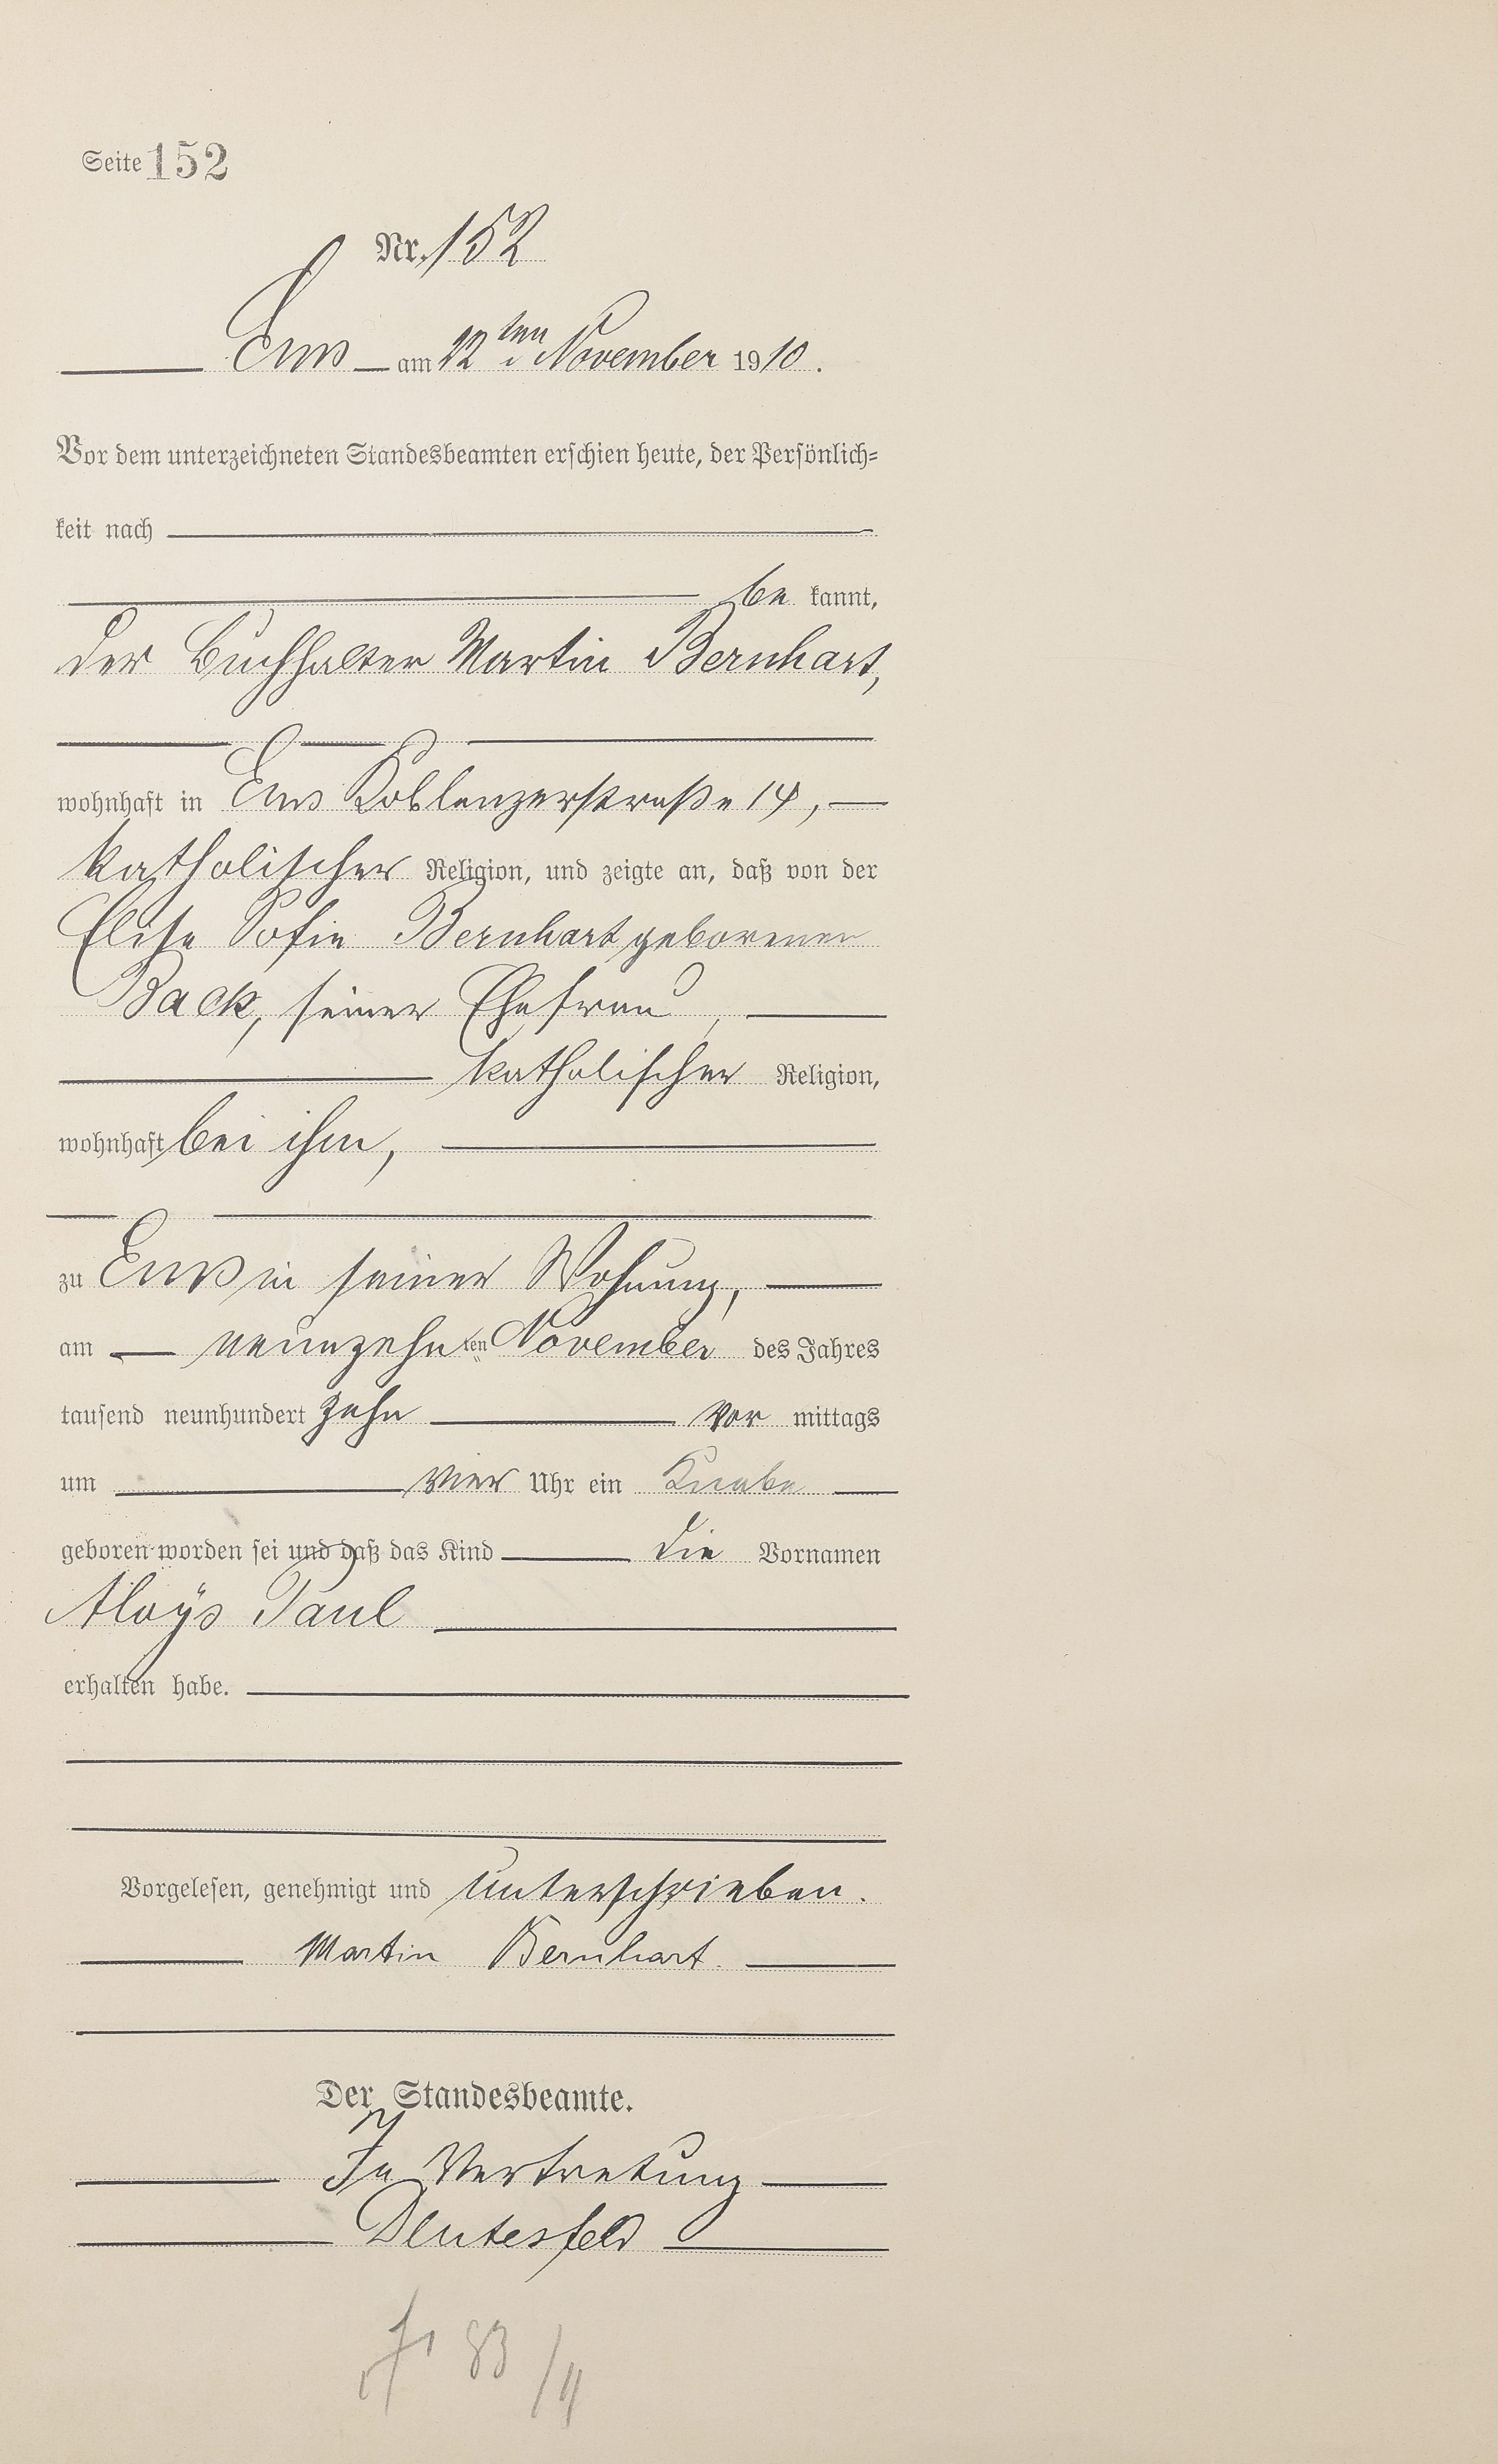 Seite 152
Nr. 152
Ems am 22ten November 1910.
Vor dem unterzeichneten Standesbeamten erschien heute, der Persönlich-
keit nach
be kannt,
der Buchhalter Martin Bernhart,
wohnhaft in Ems Koblenzerstraße 14,
katholischer Religion, und zeigte an, daß von der
Elise Sofie Bernhart geborenen
Back, seiner Ehefrau,
katholischer Religion,
wohnhaft bei ihm,
zu Ems in seiner Wohnung,
am neunzehnten November des Jahres
tausend neunhundert zehn Vor mittags
um vier Uhr ein Knabe
geboren worden sei und daß das Kind die Vornamen
Aloÿs Paul
erhalten habe.
Vorgelesen, genehmigt und unterschrieben.
Martin Bernhart.
Der Standesbeamte.
In Vertretung
83